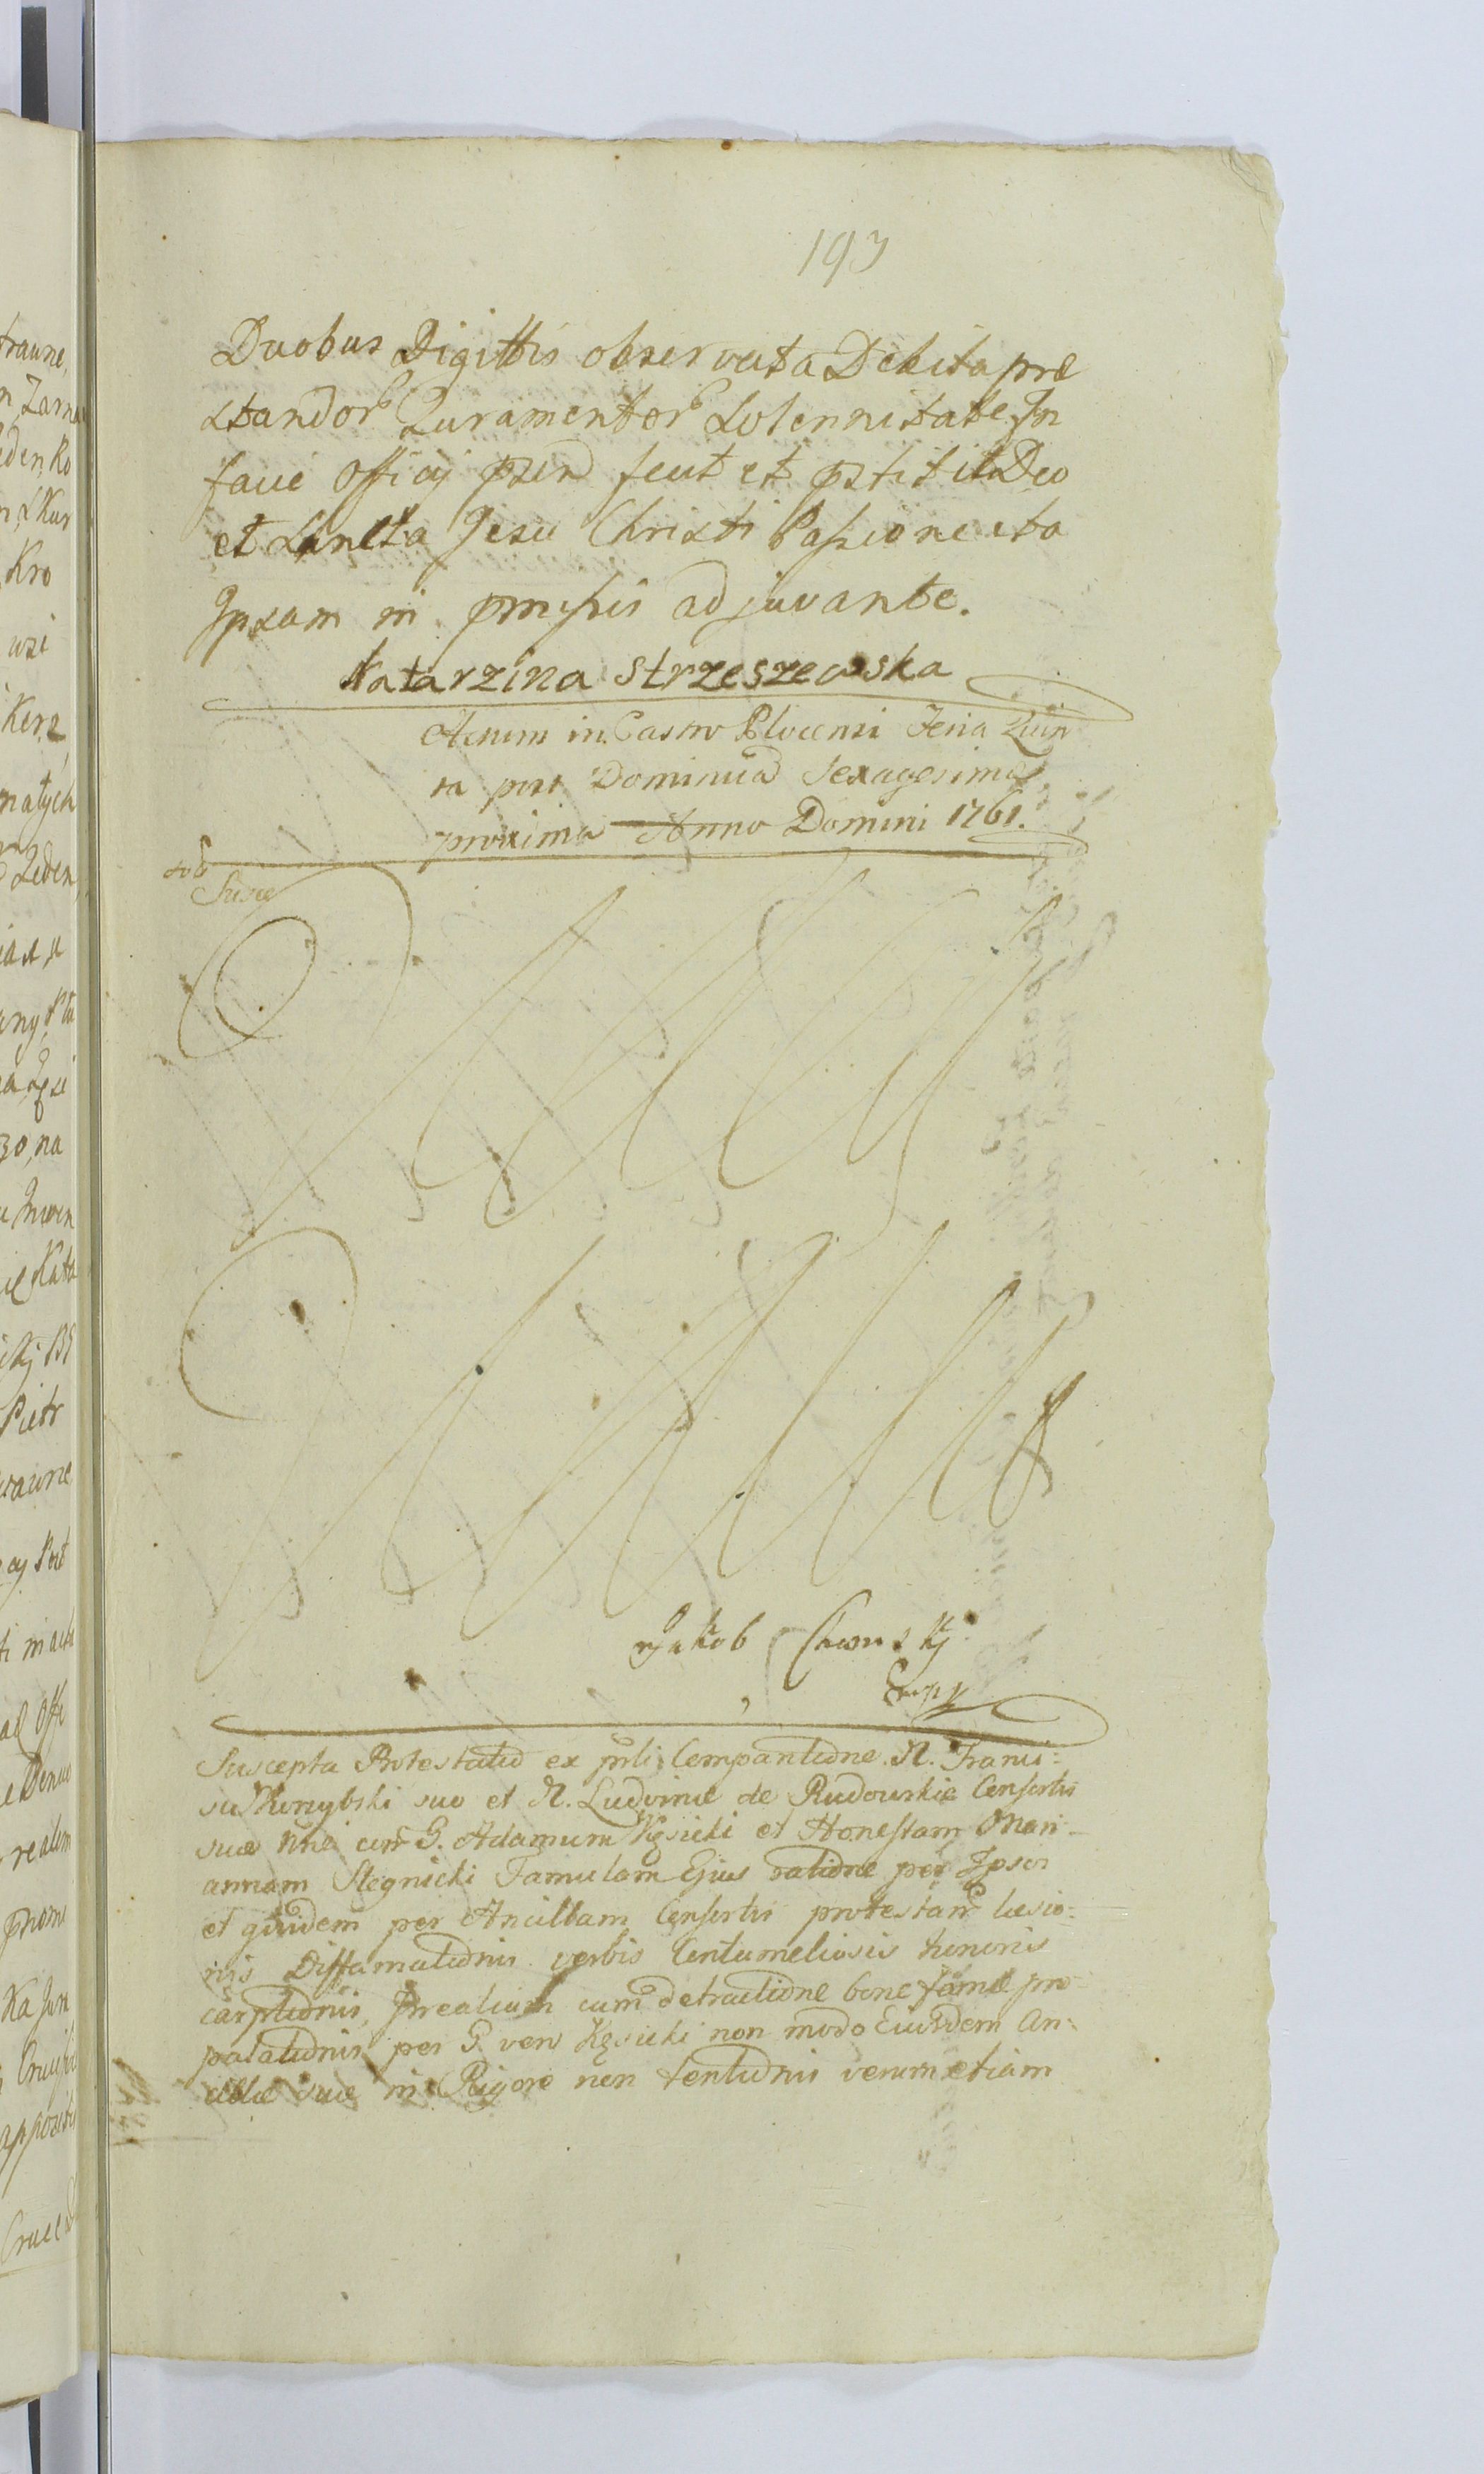 193
Duobus Digittis observata Debita præ
standor Juramentor Solennitate In
facie Officij psen fecit et pstitit Deo
et Sancta Jesu Christi Passione ita
Ipsam in pmissis adjuvante.
Katarzina Strzeszewska
Actum in Castro Plocensi Feria Quin
ta post Dominicã Sexagesimæ
proxima Anno Domini 1761.
sub
Susce
Jakob
Suscepta Protestatio ex prli Comparitione N. Franci:
sci suo et N. Ludovinæ de Rudowskie Consortis
suæ nne con G. Adamum Kęsicki et Honestam Mari-
annam Stegnicki Famulam Ejus ratione per Ipsos
et quidem per Ancillam Consortis protestan læsio:
nis Diffamationis verbis Contumeliosis honoris
carptionis, cum detractione bonæ famæ pro
palationis per G. vero Kęsicki non modo Eiusdem An:
cillæ suæ in Rigore non tentionis verum etiam